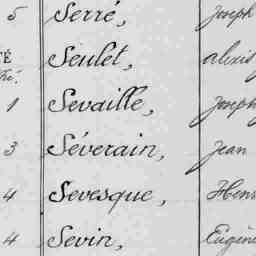 5 Serré, Joseph
TÉ Seulet, alexis
1 Sevaille, Joseph
3 Séverain, Jean
4 Sevesque, Henr
4 Sevin, Eugène